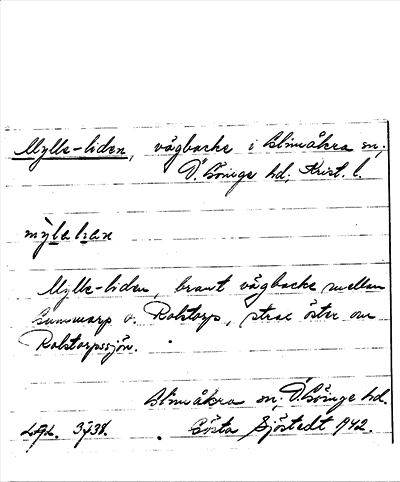 Mylle-liden, vägbacke i Glimåkra sn;
Ö. Göinge hd; Krist. l.
Mylle-liden, brant vägbacke mellan
Gummarp o. Rolstorp, strax öster om
Rolstorpssjön.
Glimåkra sn; Ö. Göinge hd.
3738. Gösta Sjöstedt 1942.